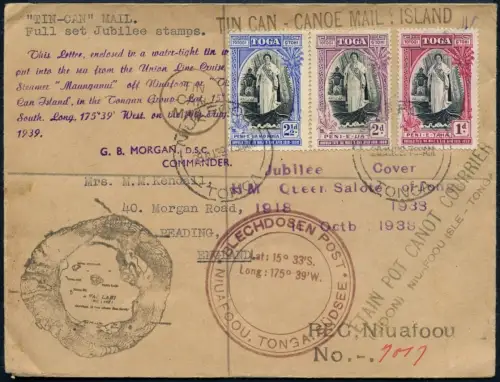 "TIN-CAN" MAIL.
Full set Jubilee stamps.
TIN CAN - CANOE MAIL : ISLAND
This Letter, enclosed in a water-tight tin
put into the sea from the Union Line Cruise
Steamer "Maunganui" off Niuafoou or
Can Island, in the Tongan Group, Lat. 15°
South, Long. 175°39' West. on the
1939.
G. B. MORGAN, D.S.C.
COMMANDER.
TOGA
PENI-E-UA
2½d
TOGA
PENI-E-UA
2d
TOGA
PENI-E-TAHA
1d
TONGA
TONGA
Jubilee Cover
H M Queen Salote of Tonga
1918 1938
Octb 1938
Mrs. M.M.Kendall,
40. Morgan Road,
READING,
ENGLAND
BLECHDOSEN POST
Lat: 15° 33'S.
Long: 175° 39'W.
NIUAFOOU, TONGA, SUDSEE
ETAIN POT CANOT COURRIER
NIUAFOOU ISLE - TONGA
REG. Niuafoou
No.-. 7017